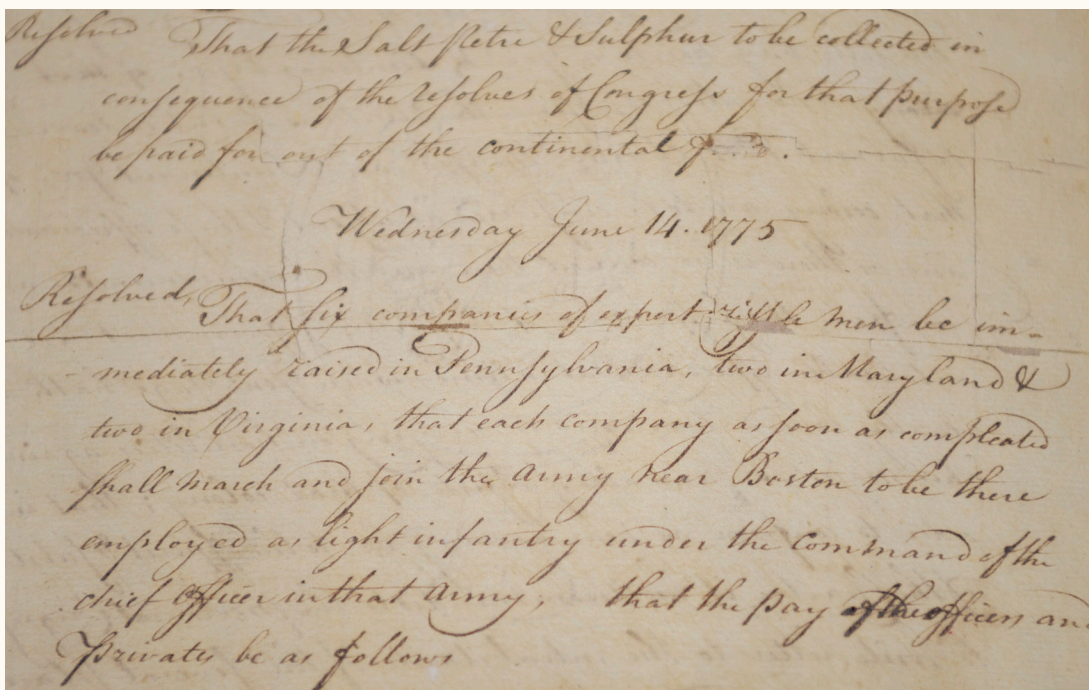 Resolved That the Salt petre & Sulphur to be collected in
consequence of the resolves of Congress for that purpose
be paid for out of the continental
Wednesday June 14. 1775
Resolved, That six companies of expert rifle men be im-
- mediately raised in Pennsylvania, two in Maryland &
two in Virginia, that each company as soon as compleated
shall march and join the army near Boston to be there
employed as light infantry under the command of the
chief officer in that army, that the pay of the officers and
privates be as follows